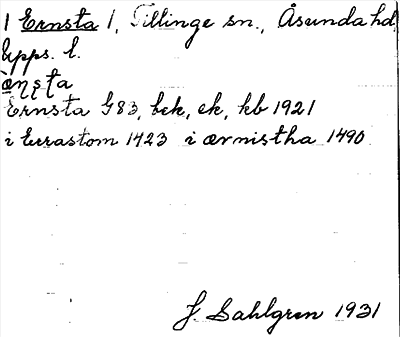 1 Ernsta 1, Tillinge sn., Åsunda hd
Upps. l.
Ernsta G83, bek, ek, kb 1921
i Errastom 1423 i ærnistha 1490
J. Sahlgren 1931